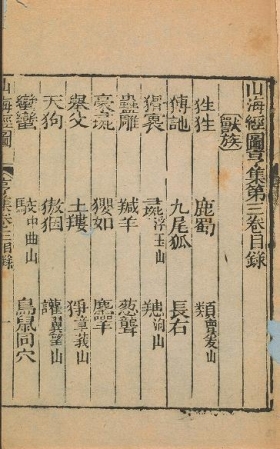 山海經圖亨集第三卷目錄
獸族
狌狌 鹿蜀 類亶爰山
猼訑 九尾狐 長右
猾褢 彘浮玉山 䍺洵山
蠱雕 羬羊 葱聾
豪彘 如
舉父 土螻 猙章莪山
天狗 讙翼望山
蠻蠻 駮中曲山 鳥鼠同穴
山海經圖 亨集卷三目錄 一